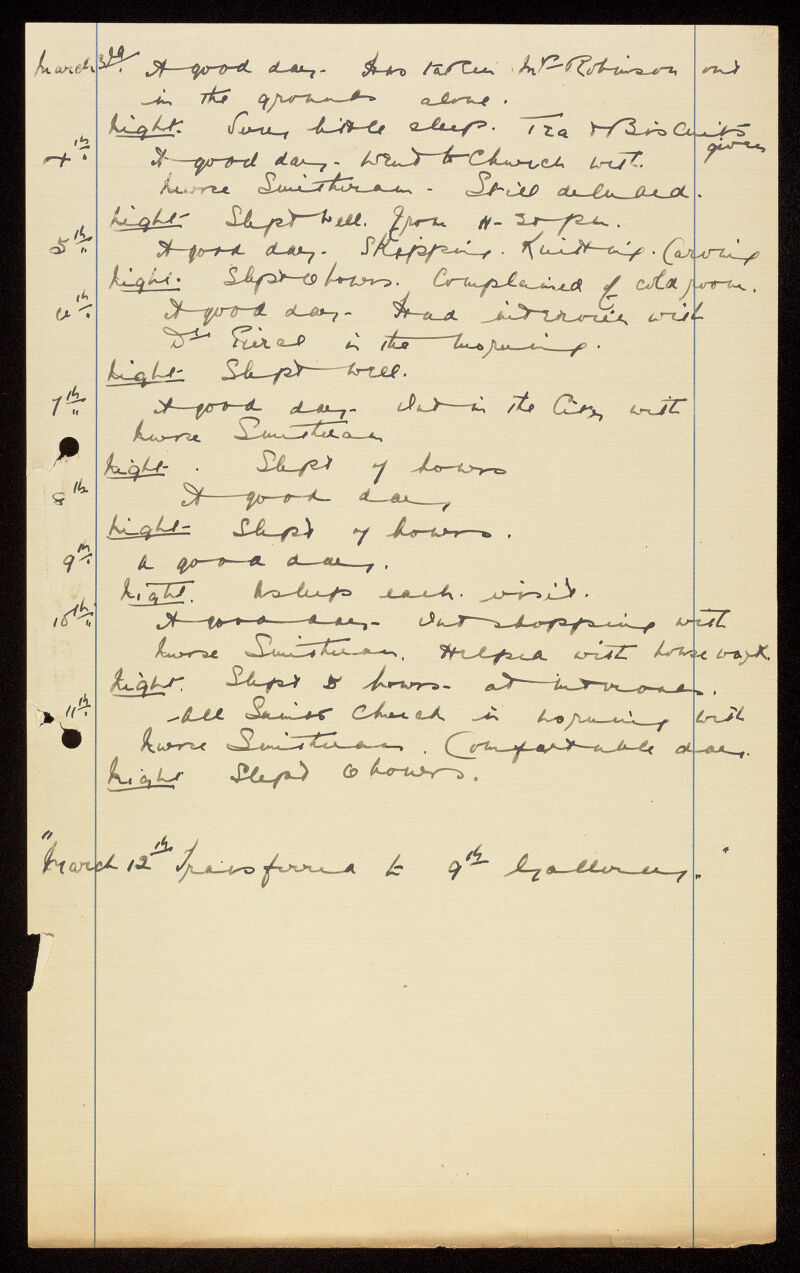 March 3rd. A good day. Has taken Mrs Robinson out
in the grounds alone.
Night. Very little sleep. Tea & Biscuits
given
4th. A good day. Went to Church with
Nurse Smitheram. Still deluded.
Night Slept well. From 11-30 pm.
5th A good day. Skipping. Knitting. Carving
Night. Slept 6 hours. Complained of cold room.
6th. A good day. Had interview with
Dr Pierce in the morning.
Night Slept well.
7th A good day. Out in the City with
Nurse Smitheram
Night. Slept 7 hours
8th A good day
Night Slept 7 hours.
9th. A good day.
Night. Asleep each visit.
10th A good day. Out shopping with
Nurse Smitheram. Helped with house work.
Night. Slept 5 hours at intervals.
11th. All Saints Church in morning with
Nurse Smitheram. Comfortable day.
Night Slept 6 hours.
"March 12th Transferred to 9th Gallery."